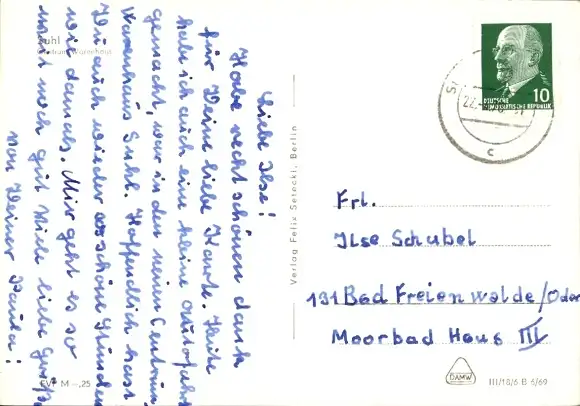 Suhl
Centrum Warenhaus
Liebe Ilse!
Habe recht schönen dank
für Deine liebe Karte. Heute
hab ich auch eine kleine autofahrt
gemacht, war in den neuen Centrum
Warenhaus Suhl. Hoffendlich hast
Du auch wieder so schöne Stunden
wie damals. Mir geht es so
weit noch gut Viele liebe Grüße
von Deiner
EVP M –,25
Verlag Felix Setecki, Berlin
10
DEUTSCHE
DEMOKRATISCHE REPUBLIK
c
Frl.
Ilse Schubel
131 Bad Freienwalde/Oder
Moorbad Haus III
DAMW
III/18/6 B 6/69